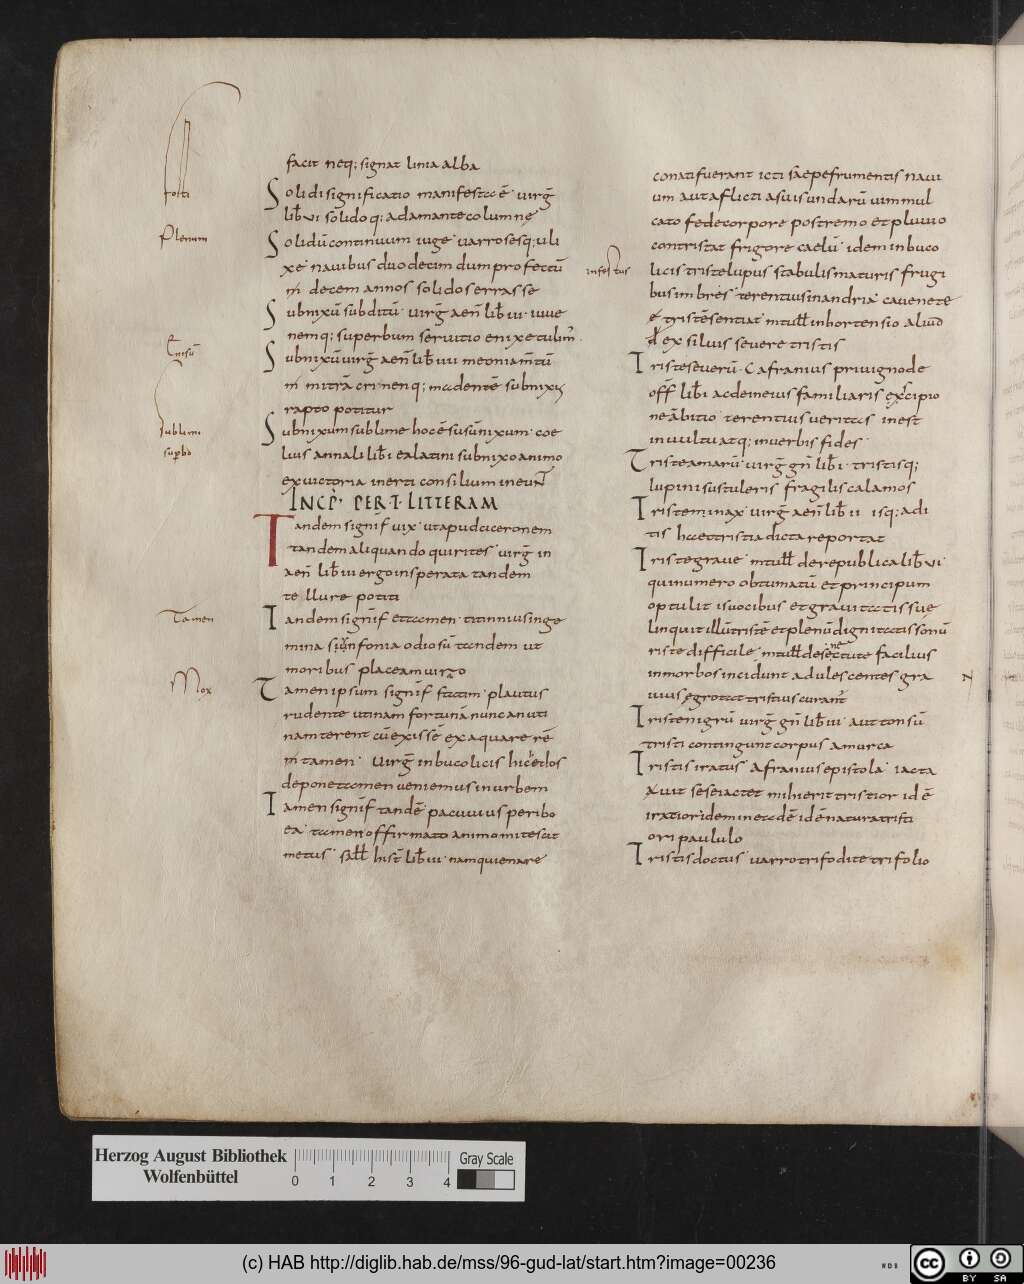 facit neq; signat linia alba
Solidi significatio manifesta ē uirḡ
lib̄ ui solido q; adamante columnę
Solidū continuum iuge uarro sesq; uli
xe nauibus duodecim dum profectū
m̄ decem annos solido errasse
Subnixū subditū uirḡ aen̄ lib̄ iii iuue
nemq; superbum seruitio enixe tulim᷒
Subnixū uirḡ aen̄ lib̄ iiii meoniam̄ tū
m̄ mitrā crinenq; madentē subnixus
rapto potitur
Subnixum sublime hoc ē susū nixum coe
lius annali lib̄ i ea latini subnixo animo
ex uictoria inerti consilium ineunt
INCP̄ PER T LITTERAM
Tandem signif̄ uix ut apud ciceronem
tandem aliquando quirites uirḡ in
aen̄ lib̄ iii ergo insperata tandem
tellure potiti
Tandem signif̄ et tamen titinnius in ge
mina sinfonia odiosū tandem ut
moribus placeam uiro
Tamen ipsum signif̄ tatim plautus
rudente utinam fortunā nunc an uti
nam terent cū exissē ex aquare rē
m̄ tamen uirḡ in bucolicis hic et hos
depone tamen ueniemus in urbem
Tamen signif̄ tandē pacuuius peribo
ea tamen offirmato animo mitescit
metus sall̄ hist̄ lib̄ iii namque nare
forti
Plenum
Enisū
sublimi
sup̱bo
Tamen
Mox
conati fuerant icti saepe frumentis naui
um aut aflicti asuis undarū uim mul
cato fede corpore postremo et pluuio
contristat frigore caelū idem in buco
licis triste lupus stabulis maturis frugi
bus imbres terentius in andria cauene te
ē tristē sentiat m tull̄ in hortensio aliud
đ ex siluis seuere tristis
Triste seuerū C afranius priuigno de
off̄ lib̄ i academeius familiaris excipio
ne ābitio terentius ueritas inest
in uultu atq; in uerbis fides
Triste amarū uirḡ gn̄ lib̄ i tristisq;
lupini sustuleris fragilis calamos
Triste minax uirḡ aen̄ lib̄ ii isq; adi
tis haec tristia dicta reportat
Triste graue m tull̄ de republica lib̄ ui
qui numero obtumatū et principum
optulit is uocibus et grauitatis suę
linquit illū tristē et plenū dignitatis sonū
riste difficile m tull̄ de senectute facilius
in morbos incidunt adulescentes gra
uius ęgrotat tristius curant᷒
Triste nigrū uirḡ gn̄ lib̄ iii aut tonsū
tristi contingunt corpus amurca
Tristis iratus afranius epistola iacta
uit sese iactet mihi erit tristior id ē
iratior idem in eadē id ē natura tristi
ori paululo
Tristis doctus uarro trifodite trifolio
infestus
Herzog August Bibliothek
Wolfenbüttel
0 1 2 3 4
Gray Scale
(c) HAB http://diglib.hab.de/mss/96-gud-lat/start.htm?image=00236
WDB
cc BY SA